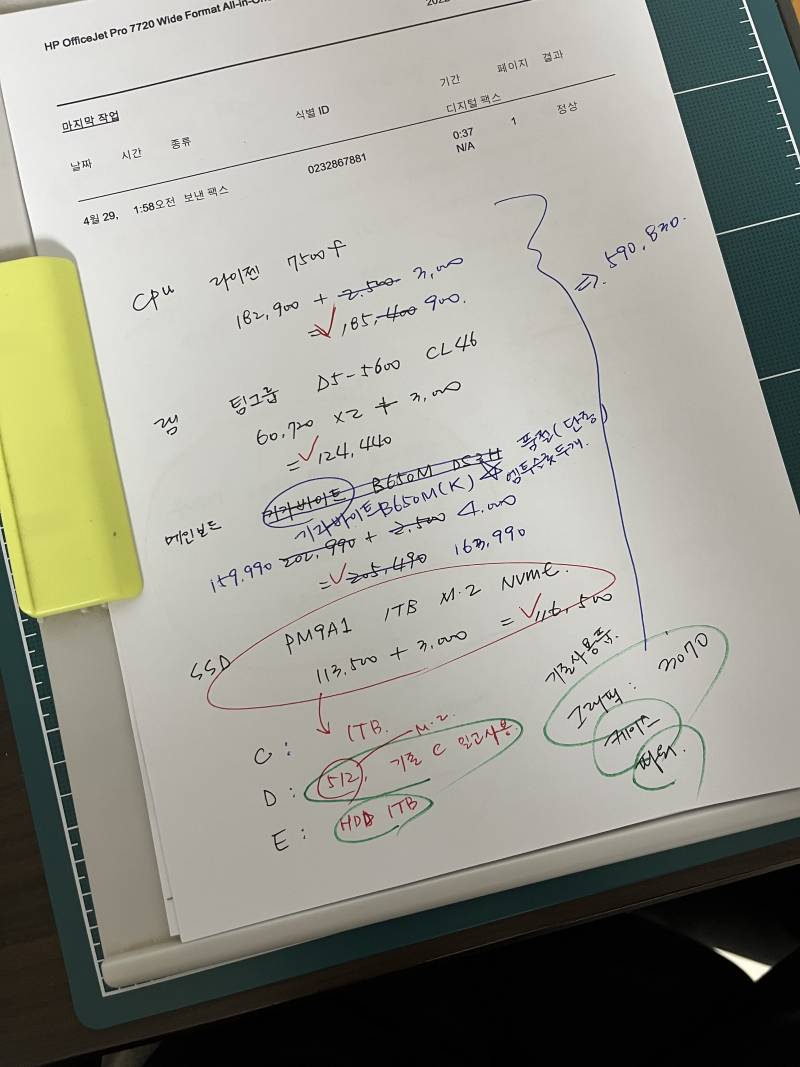 HP OfficeJet Pro 7720 Wide Format All-in-One
마지막 작업
날짜 시간 종류 식별 ID 기간 페이지 결과
디지털 팩스
4월 29, 1:58오전 보낸 팩스 0232867881 0:37 1 정상
N/A
CPU 라이젠 7500f
182,900 + 2.500 3,000
= 185,400 900.
⇒ 590,830.
램 팀그룹 D5-5600 CL46
60,720 x2 + 3,000
= 124,440
메인보드 기가바이트 B650M DS3H 품절(단종)
기가바이트 B650M(K) 엠투슬롯두개.
159.990 202,990 + 2,500 4.000
= 205,490 163,990
SSD PM9A1 1TB M.2 NVMe.
113,500 + 3,000 = 116,500
기존사용품.
그래픽: 3070
케이스
파워.
C: 1TB.
M.2.
D: 512, 기존 C 밀고사용.
E: HDD 1TB